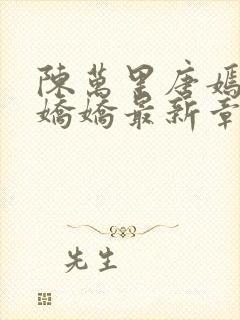 陳萬里唐嫣
嬌嬌最新章
先生